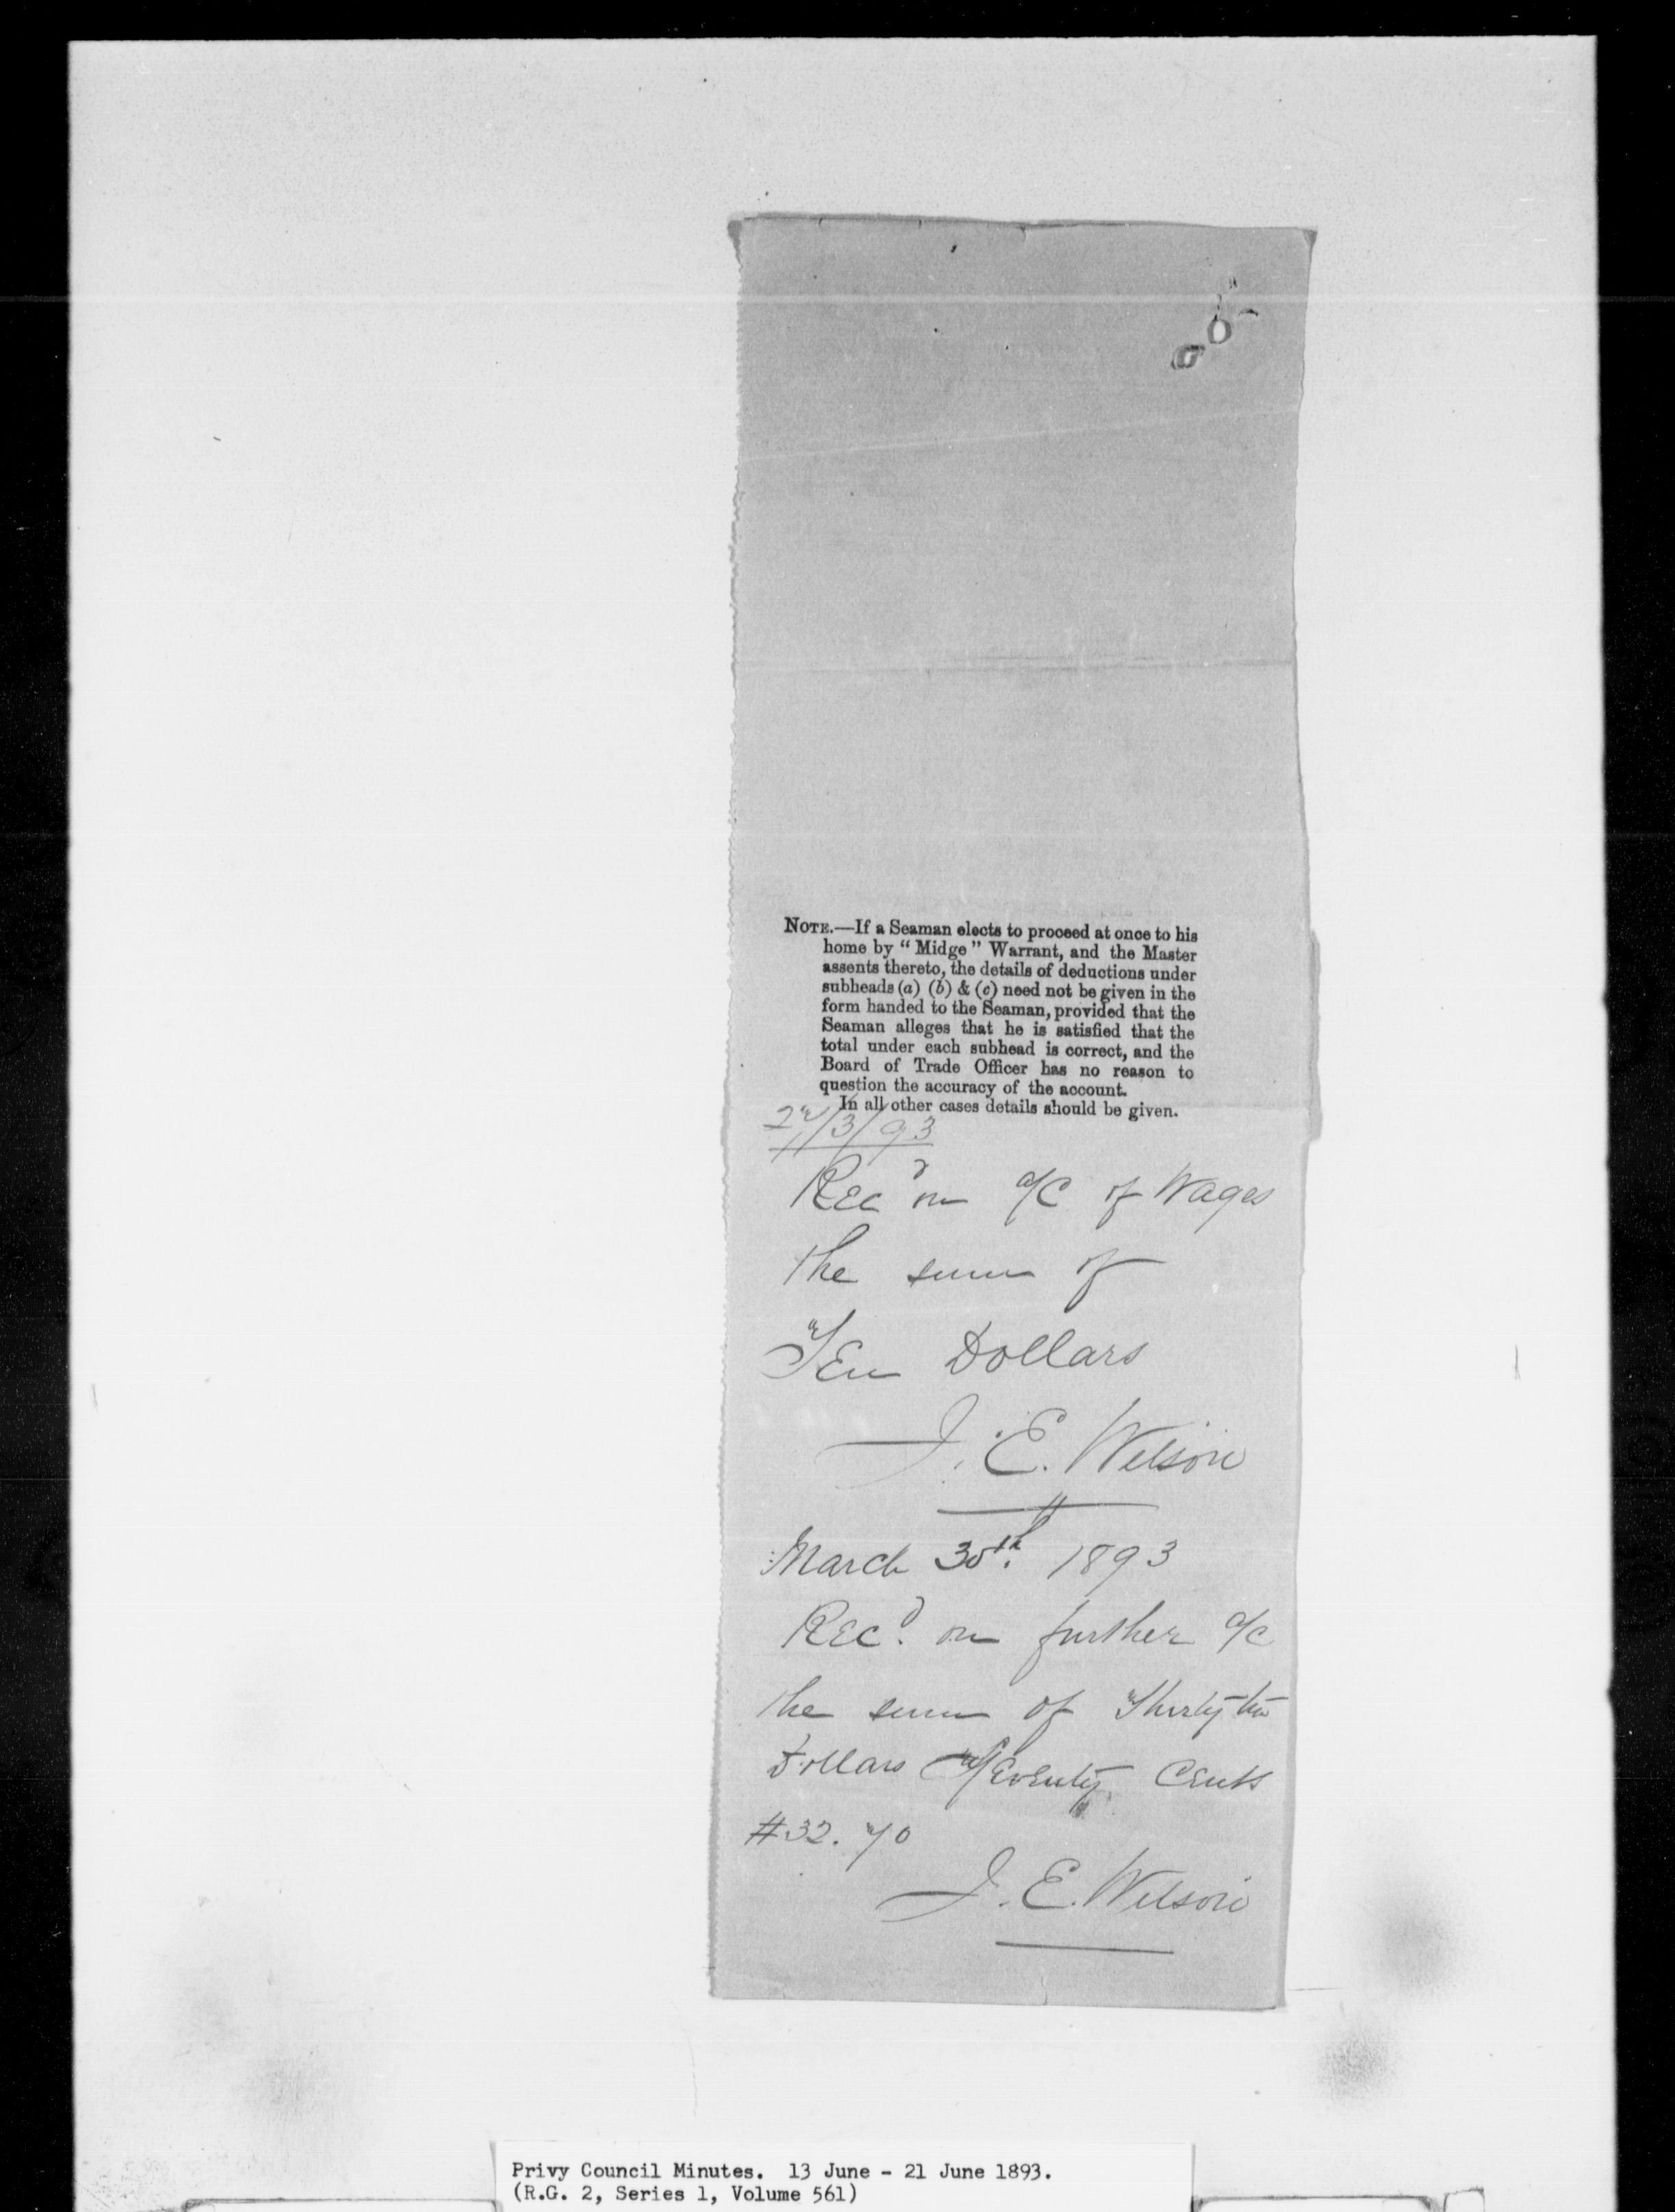 NOTE.—If a Seaman elects to proceed at once to his
home by "Midge" Warrant, and the Master
assents thereto, the details of deductions under
subheads (a) (b) & (c) need not be given in the
form handed to the Seaman, provided that the
Seaman alleges that he is satisfied that the
total under each subhead is correct, and the
Board of Trade Officer has no reason to
question the accuracy of the account.
In all other cases details should be given.
/3/93
Rec'd on a/c of Wages
the sum of
Ten Dollars
J. E. Wilson
March 30th. 1893
Rec'd. on further a/c
the sum of Thirty two
Dollars Seventy Cents
#32.70
J. E. Wilson
Privy Council Minutes. 13 June - 21 June 1893.
(R.G. 2, Series 1, Volume 561)